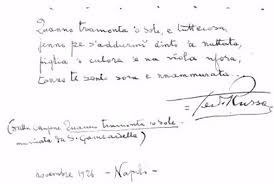 Quanno tramonta 'o sole, e tuttecosa,
jenno pe s'addurmì dint' 'a nuttata,
piglia 'o culore 'e na viola nfosa,
tanno te sento sora e nnammurata.
Ferd. Russo
(Dalla canzone Quanno tramonta 'o sole
musicata da S. Gambardella)
novembre 1926 - Napoli -